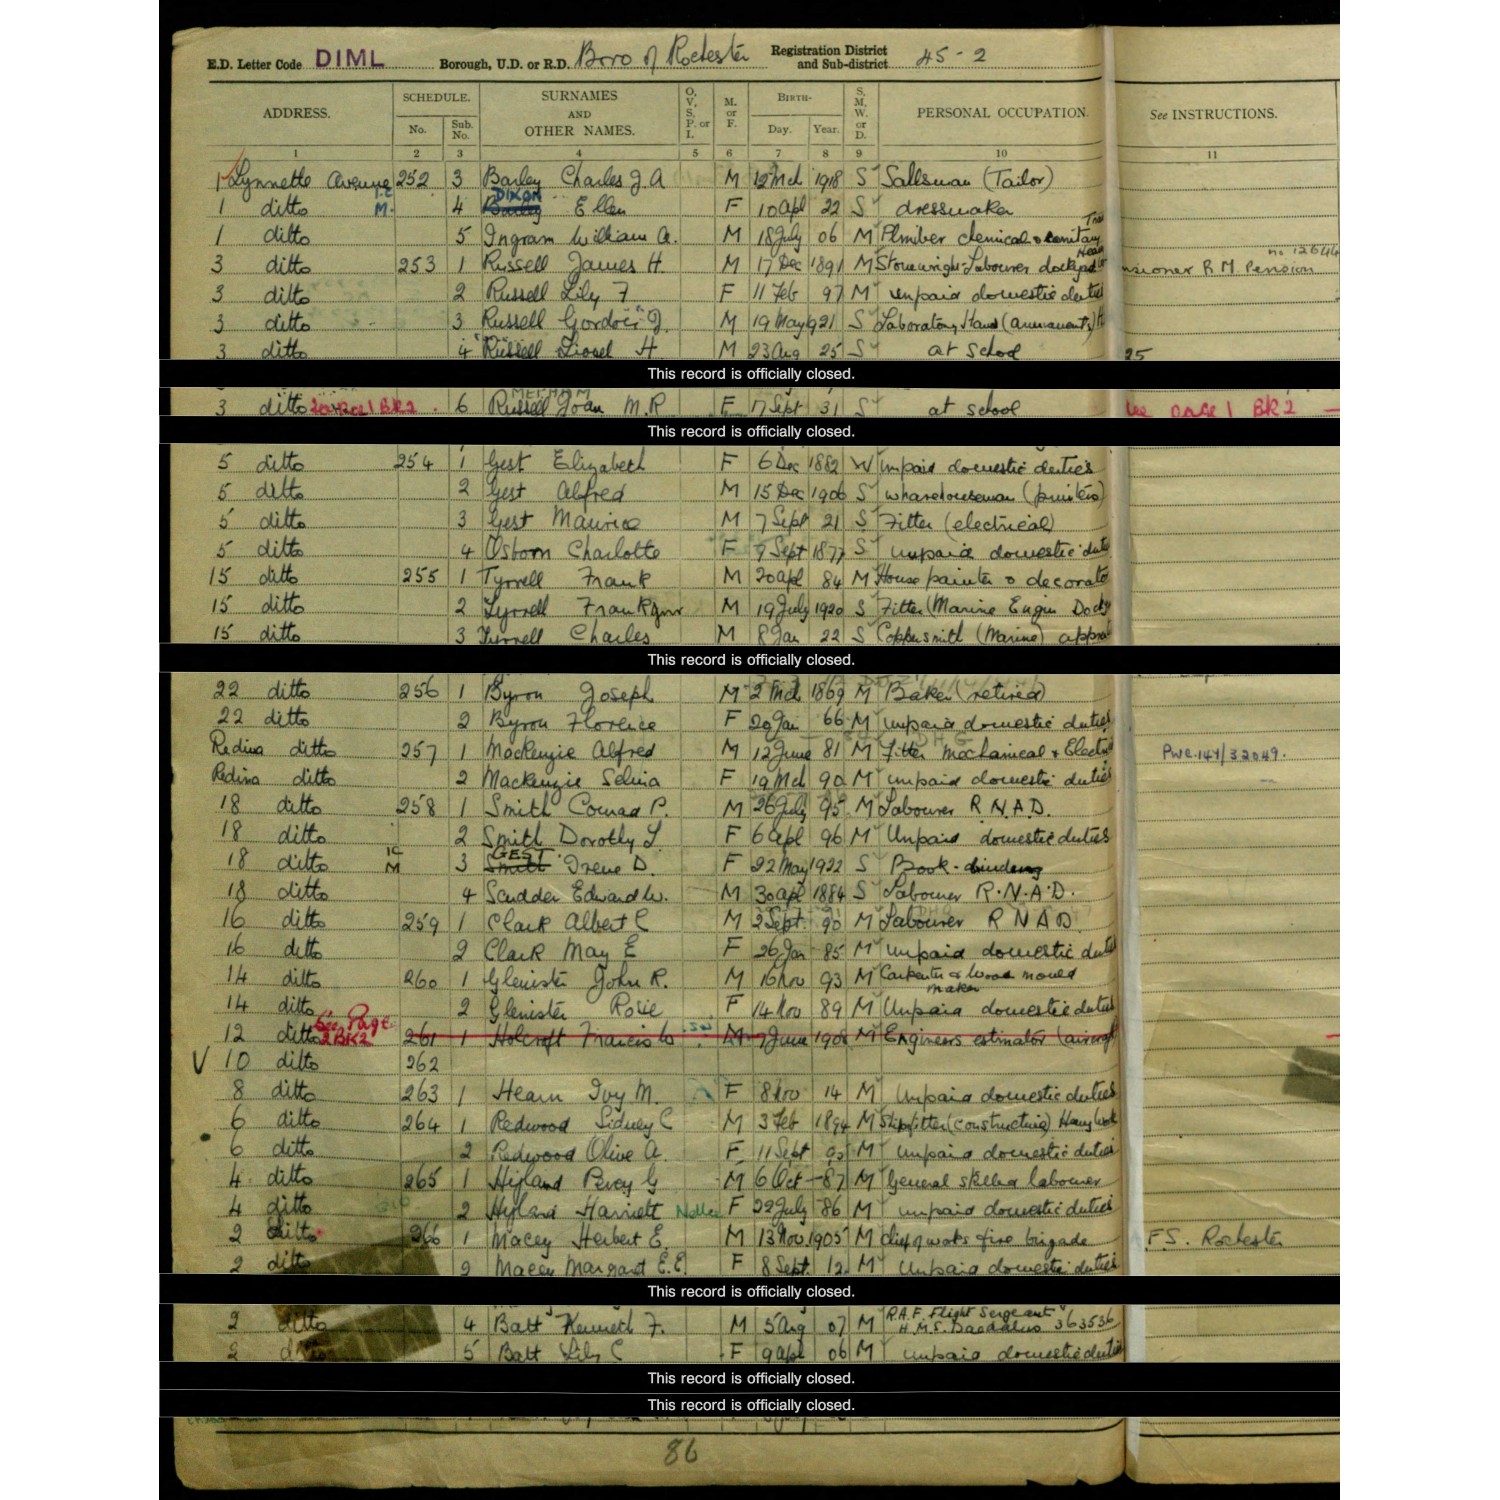 E.D. Letter Code DIML Borough, U.D. or R.D. Boro of Rochester Registration District and Sub-district 45-2
ADDRESS. SCHEDULE. No. Sub. No. SURNAMES AND OTHER NAMES. O, V, S, P. or I. M. or F. BIRTH- Day. Year. S, M, W. or D. PERSONAL OCCUPATION. See INSTRUCTIONS.
1 2 3 4 5 6 7 8 9 10 11
1 Lynnette Avenue 252 3 Barley Charles J. A M 12 Mch 1918 S Salesman (Tailor)
1 ditto M. 4 DIXON Barley Ellen F 10 Apl 22 S dressmaker
1 ditto 5 Ingram William A. M 18 July 06 M Plmiber chemical & sanitary
3 ditto 253 1 Russell James H. M 17 Dec 1891 M Labourer R M Pension
3 ditto 2 Russell Lily F F 11 Feb 97 M unpaid domestic duties
3 ditto 3 Russell Gordon J. M 19 May 1921 S Laboratory Hand
3 ditto 4 Russell Lionel H M 23 Aug 25 S at school 25
This record is officially closed.
3 ditto See Page 1 BK2. 6 MEPHAM Russell Joan M. R F 17 Sept 31 S at school See page 1 BK2
This record is officially closed.
5 ditto 254 1 Gest Elizabeth F 6 Dec 1882 W unpaid domestic duties
5 ditto 2 Gest Alfred M 15 Dec 1906 S wharehouseman (printers)
5 ditto 3 Gest Maurice M 7 Sept 21 S Fitter (electrical)
5 ditto 4 Osborn Charlotte F 9 Sept 1877 S unpaid domestic duties
15 ditto 255 1 Tyrrell Frank M 20 Apl 84 M House painter & decorato
15 ditto 2 Tyrrell Frank Jnr M 19 July 1920 S Fitter (Marine Engin Dock
15 ditto 3 Tyrrell Charles M 8 Jan 22 S Coppersmith (Marine) appren
This record is officially closed.
22 ditto 256 1 Byron Joseph M 2 Mch 1869 M Baker (retired)
22 ditto 2 Byron Florence F 20 Jan 66 M unpaid domestic duties
Redina ditto 257 1 Mackenzie Alfred M 12 June 81 M Fitter Mechanical & Elect PWE.147/32049.
Redina ditto 2 Mackenzie Selina F 19 Mch 90 M unpaid domestic duties
18 ditto 258 1 Smith Conrad P. M 26 July 95 M Labourer R.N.A.D.
18 ditto 2 Smith Dorothy L. F 6 Apl 96 M Unpaid domestic duties
18 ditto M 3 GEST Smith Irene D. F 22 May 1922 S Book-binding
18 ditto 4 Scudder Edward W. M 30 Apl 1884 S Labourer R.N.A.D.
16 ditto 259 1 Clark Albert C M 2 Sept. 90 M Labourer R N A D
16 ditto 2 Clark May E F 26 Jan 85 M unpaid domestic duties
14 ditto 260 1 Glenister John R. M 16 Nov 93 M Carpenter & Wood mould maker
14 ditto 2 Glenister Rosie F 14 Nov 89 M Unpaid domestic duties
12 ditto See Page 2 BK2 261 1 Holcroft Francis W M 7 June 1908 M Engineers estimator (aircraft
V 10 ditto 262
8 ditto 263 1 Hearn Ivy M. F 8 Nov 14 M Unpaid domestic duties
6 ditto 264 1 Redwood Sidney C M 3 Feb 1894 M Shipfitter (constructing) Heavy Work
6 ditto 2 Redwood Olive A. F 11 Sept M unpaid domestic duties
4 ditto 265 1 Hyland Percy G M 6 Oct 87 M General skilled labourer
4 ditto 2 Hyland Harriett F 22 July 86 M unpaid domestic duties
2 ditto 266 1 Macey Herbert E. M 13 Nov. 1905 M works fire brigade F.S. Rochester
2 ditto 2 Macey Margaret E.E. F 8 Sept. 12 M Unpaid domestic duties
This record is officially closed.
2 ditto 4 Batt Kenneth F. M 5 Aug 07 M R.A.F. Flight Sergeant H.M.S. Daedalus 363536
2 ditto 5 Batt Lily C F 9 Apl 06 M unpaid domestic duties
This record is officially closed.
This record is officially closed.
86